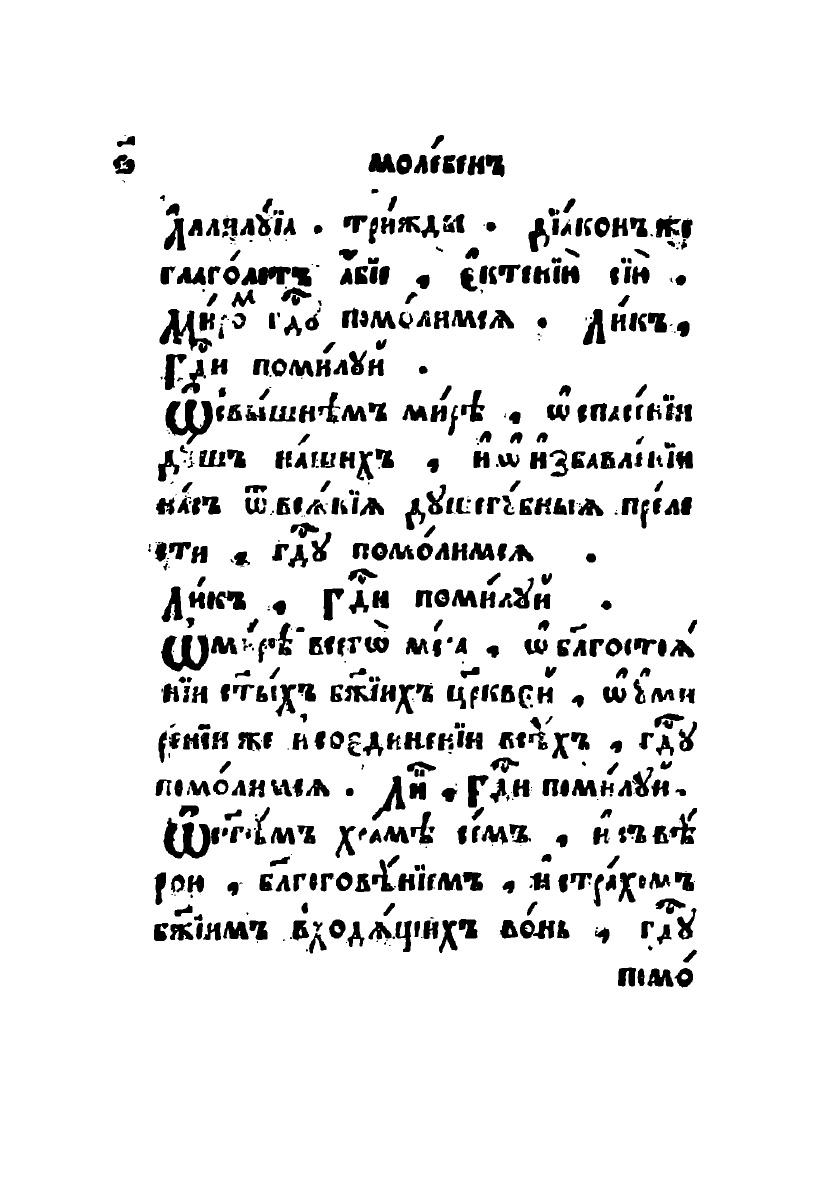 в҃ молє́бенъ
А҆ллилꙋ́їа . три́жды . дїа́конъ же
глаго́летъ а҆́бїе , є҆ктенїѝ сїѝ .
Ми́ромъ гдⷭ҇ꙋ помо́лимсѧ . Ли́къ ,
Гдⷭ҇и поми́лꙋй .
Ѽ свы́шнѣмъ ми́рѣ , ѡ҆ спасе́нїи
дꙋ́шъ на́шихъ , и҆ ѡ҆ и҆збавле́нїи
на́съ ѿ всѧ́кїѧ дꙋшегꙋ́бныѧ пре́ле
сти , гдⷭ҇ꙋ помо́лимсѧ .
Ли́къ , Гдⷭ҇и поми́лꙋй .
Ѽ ми́рѣ всегѡ̀ мі́ра , ѡ҆ бл҃госто­ѧ́
нїи ст҃ы́хъ бж҃їихъ цр҃кве́й , ѡ҆ ᲂу҆ми
ре́нїи же и҆ соедине́нїи всѣ́хъ , гдⷭ҇ꙋ
помо́лимсѧ . Ли́ , Гдⷭ҇и поми́лꙋй .
Ѽ ст҃ѣ́мъ хра́мѣ се́мъ , и҆ съ вѣ́
рои , бл҃гоговѣ́нїемъ , и҆ стра́хомъ
бж҃їимъ входѧ́щихъ во́нь , гдⷭ҇ꙋ
помо́